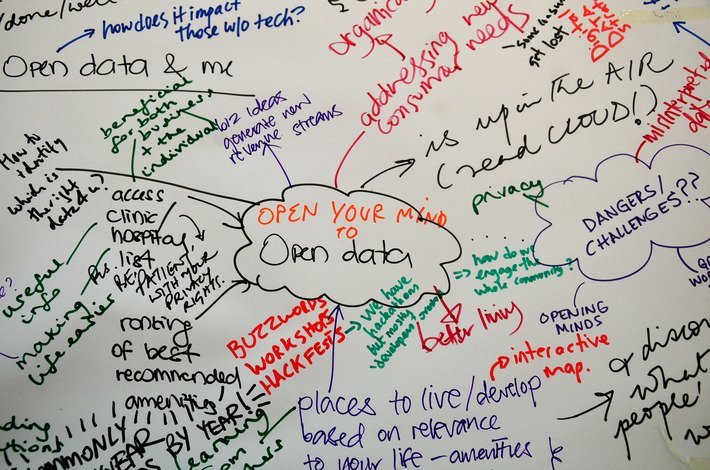 /done/we
how does it impact
those w/o tech?
Open data & me
organic
addressing new
consumer needs
get lost
misinterpret
data
is up in the AIR
(read CLOUD!)
beneficial
for both
business
+ the
individual
biz ideas
generate new
revenue streams
How to
identify
which is
the right
data 4 u?
privacy
DANGERS/
CHALLENGES??
OPEN YOUR MIND
TO
Open data
access
clinic
hospital
list
RE: PATIENT
WITH YOUR
PRIVACY
RIGHTS.
useful
info
making
life easier
=> how do we
engage the
whole community?
=> We have
hackathons
but mostly
developers
better living
OPENING
MINDS
interactive
map.
BUZZWORDS
WORKSHOPS
HACKFESTS
ranking
of best
recommended
amenities
OMMONLY
YEAR
BY YEAR!
learning
places to live/develop
based on relevance
to your life - amenities
& discov
what
people'
w